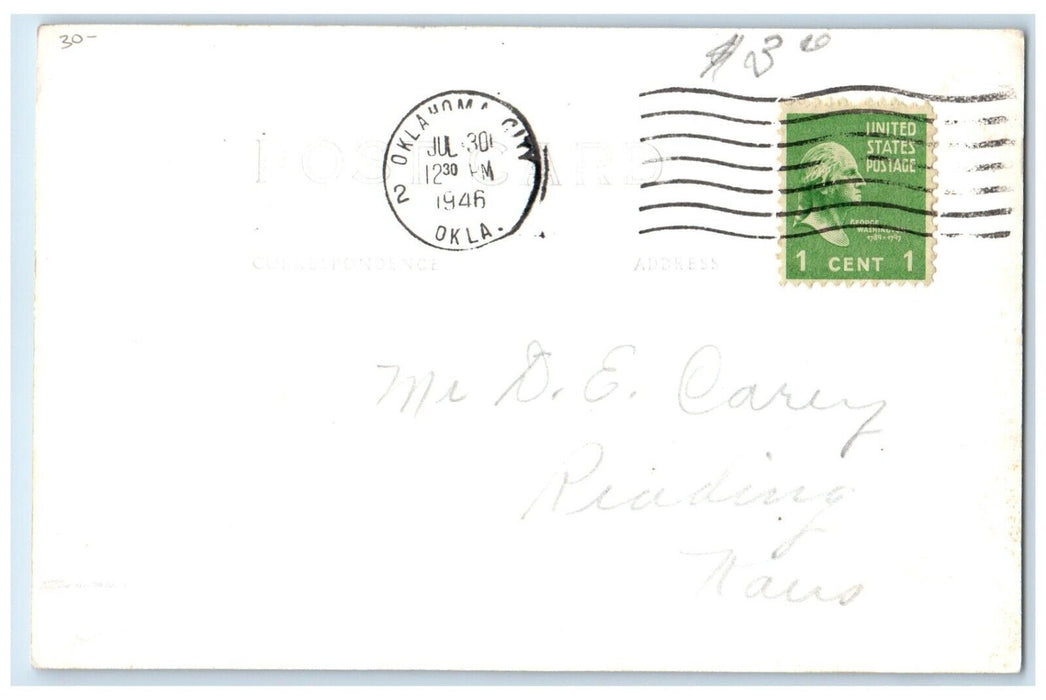 30-
$3
POST CARD
2 OKLAHOMA CITY
JUL 30
12 30 PM
1946
OKLA.
UNITED
STATES
POSTAGE
GEORGE
WASHINGTON
1789-1797
1 CENT 1
CORRESPONDENCE ADDRESS
Mr D. E. Carey
Reading
Kans